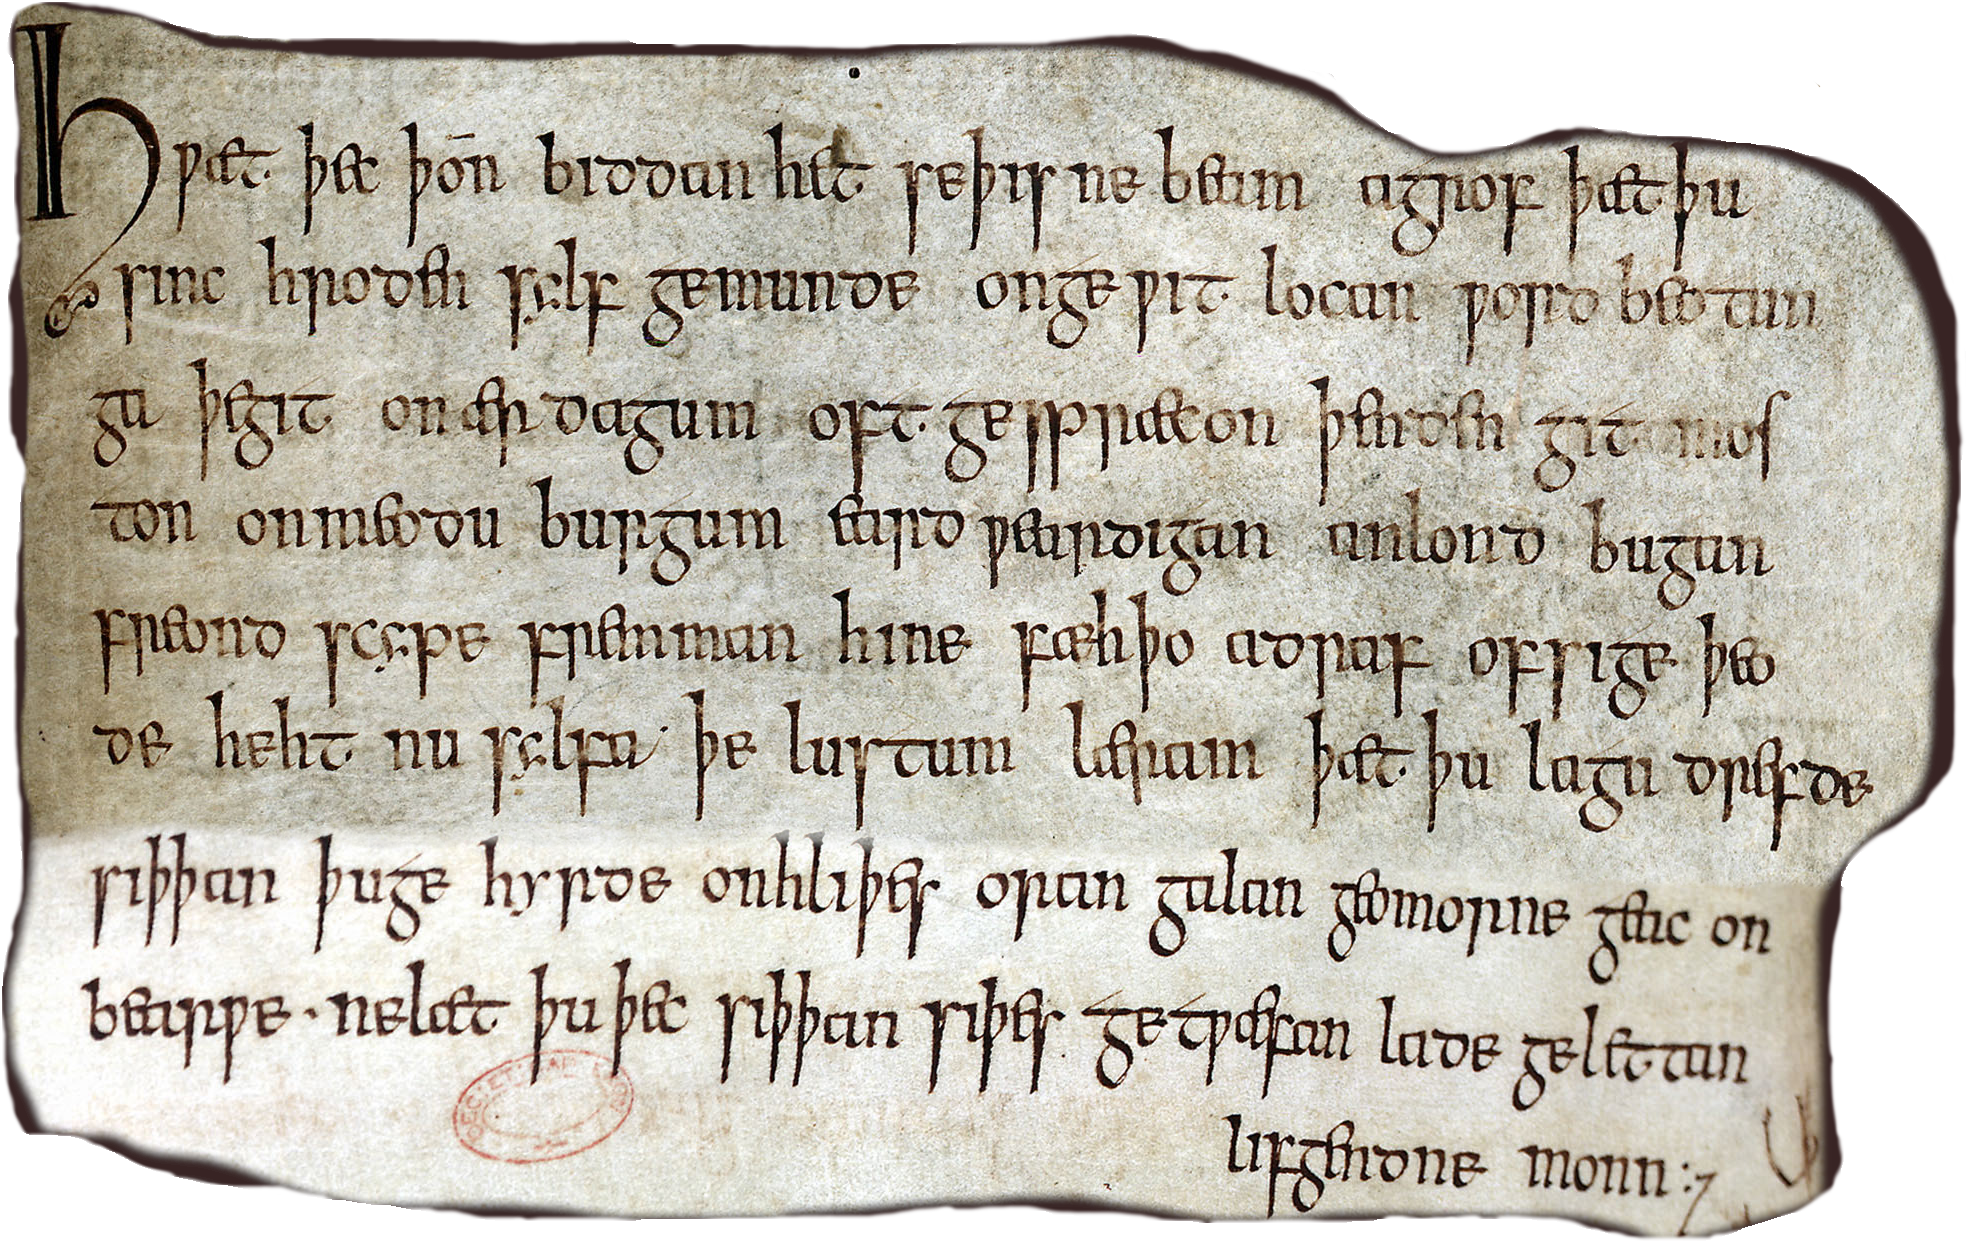 Hƿæt þec þōn biddan het seþisne beam agrof þæt þu
sinc hroden sylf gemunde ongeƿit locan ƿord beotun
ga þegit onær dagum oft gespræcon þenden git mos
ton onmeodu burgum eard ƿeardigan anlond bugan
freond scype fremman hine fæhþo adraf ofsige þeo
de heht nu sylfa þe lustum læran þæt þu lagu drefde
siþþan þuge hyrde onhliþes oran galan geomorne geac on
bearƿe · nelæt þu þec siþþan siþes getƿæfan lade gelettan
lifgendne monn :⁊